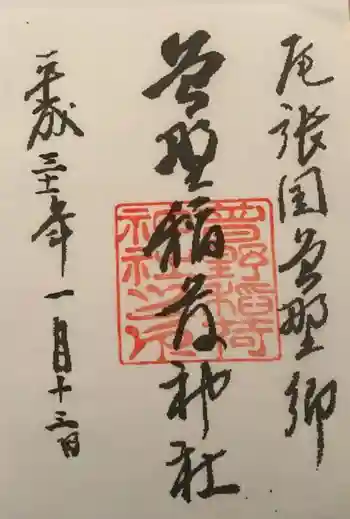 尾張国曽野郷
曽野稲荷神社
平成三十一年一月十三日
曽野稲荷神社之印